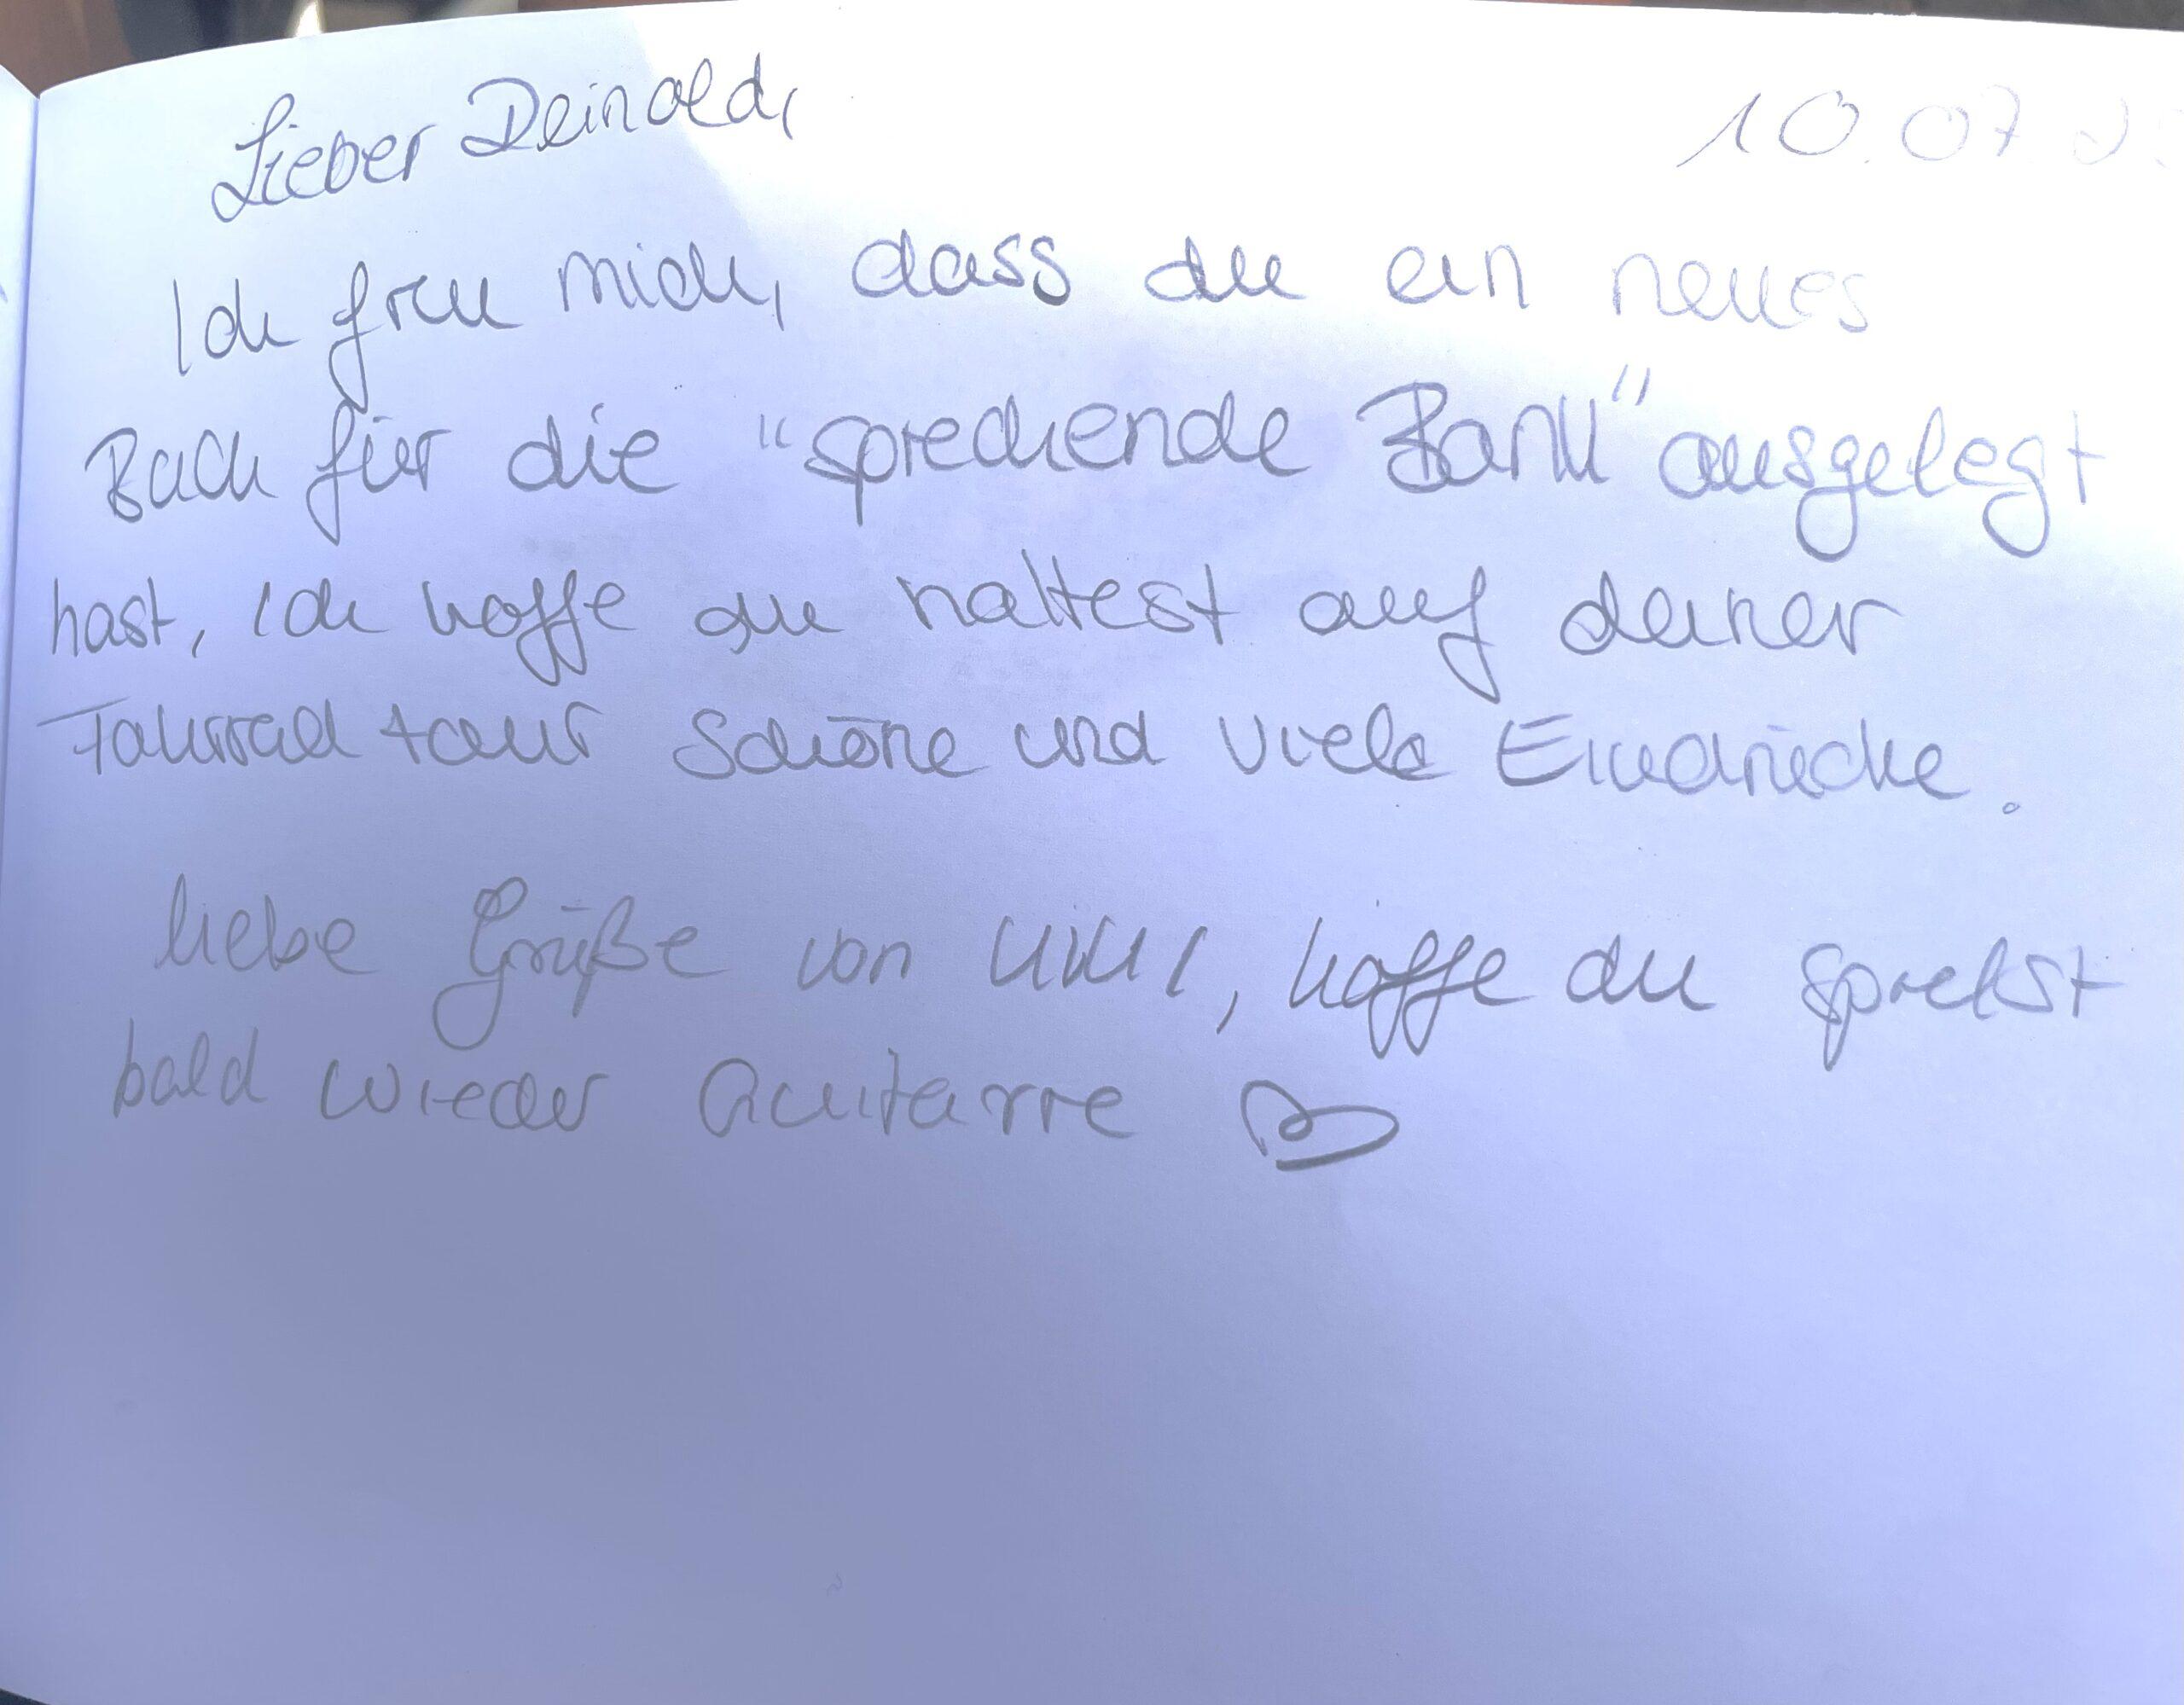 Lieber Deinold,
10.07.
Ich freu mich, dass du ein neues
Buch für die "sprechende Bank" ausgelegt
hast, Ich hoffe du hattest auf deiner
Fahrrad tour schöne und viele Eindrücke.
liebe Grüße von Kiki, hoffe du spielst
bald wieder Guitarre